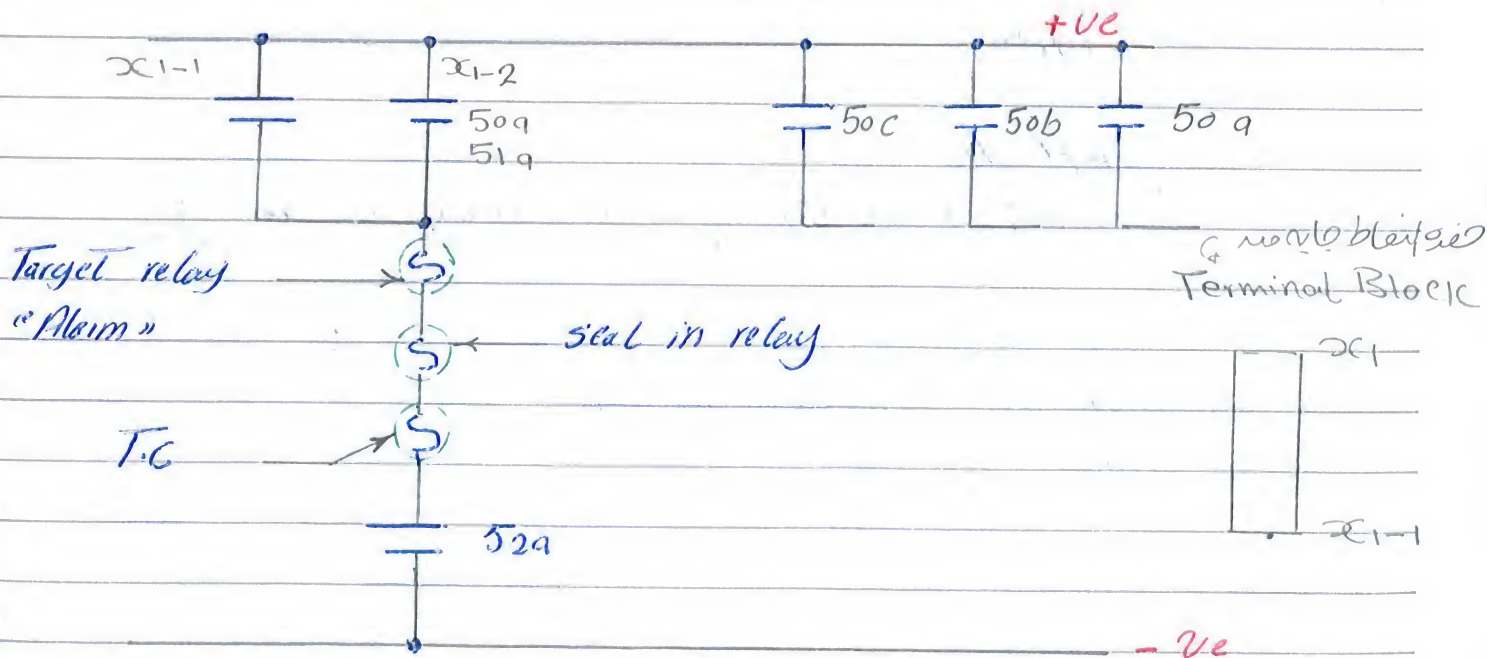 +ve
x1-1
x1-2
50a
51a
50c
50b
50a
Terminal Block
Target relay
"Alarm"
seal in relay
x1
T.C
x1-1
52a
- ve